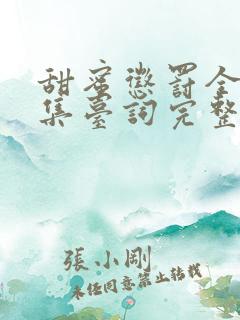 甜蜜懲罰全
集臺詞完整
張小剛
未经同意禁止转载